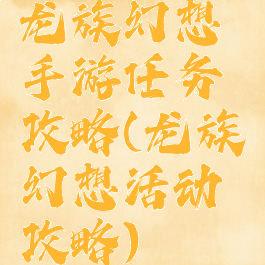 龙族幻想
手游任务
攻略(龙族
幻想活动
攻略)